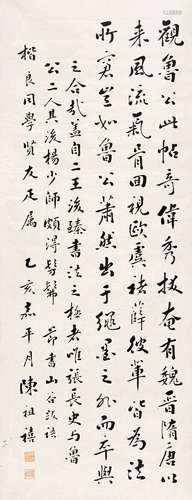 觀魯公此帖奇偉秀拔奄有魏晉隋唐以
來風流氣骨回視歐虞褚薛彼輩皆為法
所窘豈如魯公蕭然出于繩墨之外而卒與
之合哉蓋自二王後臻書法之極者唯張長史與魯
公二人其後楊少師頗得髣髴 節書山谷跋語
楷良同學賢友疋屬 乙亥嘉平月陳祖禧